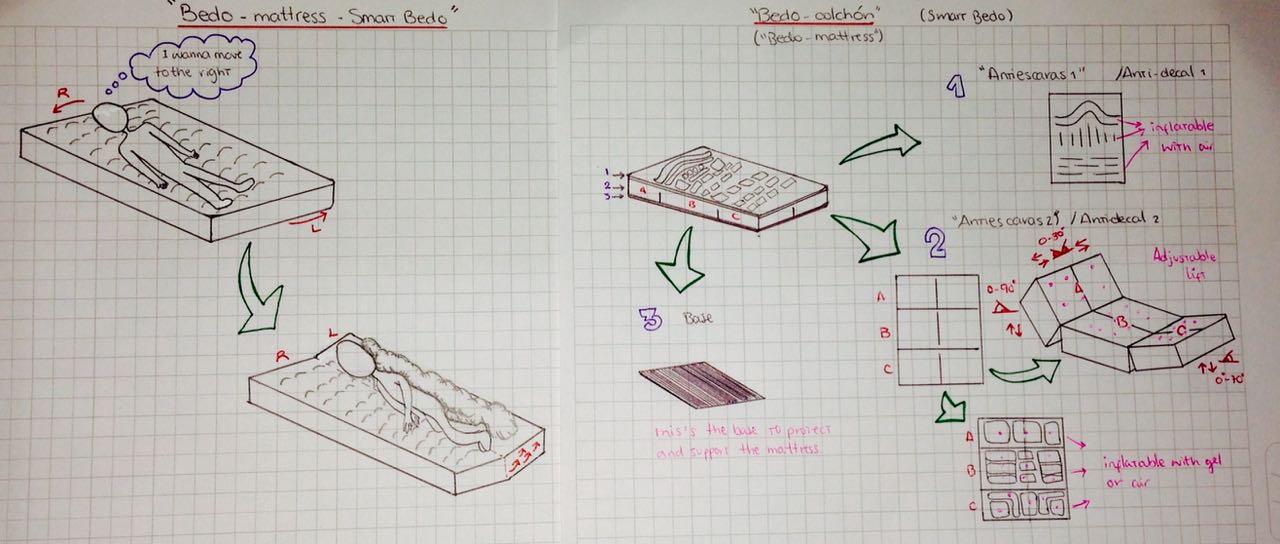 "Bedo - mattress - Smart Bedo"
I wanna move
to the right
R
L
L
R
"Bedo - colchón" (Smart Bedo)
("Bedo - mattress")
1
2
3
A
B
C
1 "Antiescaras 1" / Anti-decal 1
inflatable
with air
2 "Antiescaras 2" / Antidecal 2
A
B
C
0-30°
0-90°
Adjustable
lift
A
B
C
0-70°
3 Base
this's the base to protect
and support the mattress
A
B
C
inflatable with gel
or air